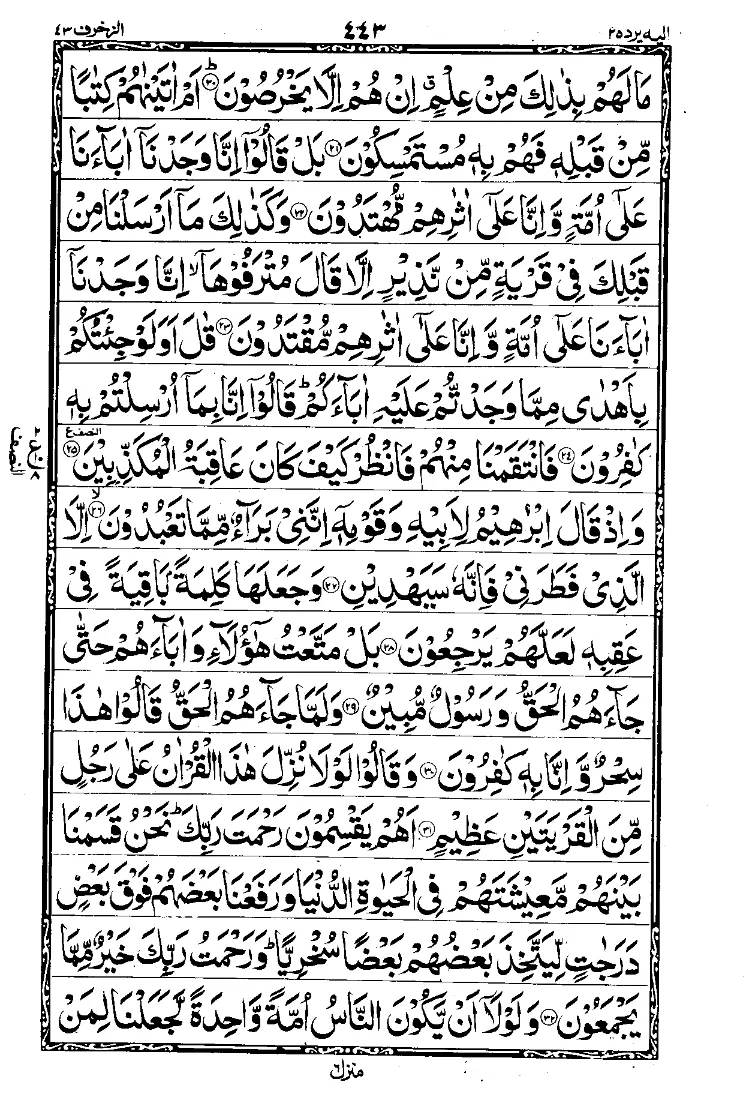 الیه یرد ۲۵ ۴۴۳ الزخرف ۴۳
مَا لَهُمْ بِذٰلِكَ مِنْ عِلْمٍ ۗ اِنْ هُمْ اِلَّا یَخْرُصُوْنَ ﴿۲۰﴾ ؕ اَمْ اٰتَیْنٰهُمْ كِتٰبًا
مِّنْ قَبْلِهٖ فَهُمْ بِهٖ مُسْتَمْسِكُوْنَ ﴿۲۱﴾ بَلْ قَالُوْۤا اِنَّا وَجَدْنَاۤ اٰبَآءَنَا
عَلٰۤی اُمَّةٍ وَّ اِنَّا عَلٰۤی اٰثٰرِهِمْ مُّهْتَدُوْنَ ﴿۲۲﴾ وَ كَذٰلِكَ مَاۤ اَرْسَلْنَا مِنْ
قَبْلِكَ فِیْ قَرْیَةٍ مِّنْ نَّذِیْرٍ اِلَّا قَالَ مُتْرَفُوْهَاۤ ۙ اِنَّا وَجَدْنَاۤ
اٰبَآءَنَا عَلٰۤی اُمَّةٍ وَّ اِنَّا عَلٰۤی اٰثٰرِهِمْ مُّقْتَدُوْنَ ﴿۲۳﴾ قٰلَ اَوَ لَوْ جِئْتُكُمْ
بِاَهْدٰی مِمَّا وَجَدْتُّمْ عَلَیْهِ اٰبَآءَكُمْ ؕ قَالُوْۤا اِنَّا بِمَاۤ اُرْسِلْتُمْ بِهٖ
كٰفِرُوْنَ ﴿۲۴﴾ فَانْتَقَمْنَا مِنْهُمْ فَانْظُرْ كَیْفَ كَانَ عَاقِبَةُ الْمُكَذِّبِیْنَ ﴿۲۵﴾
النصف
وَ اِذْ قَالَ اِبْرٰهِیْمُ لِاَبِیْهِ وَ قَوْمِهٖۤ اِنَّنِیْ بَرَآءٌ مِّمَّا تَعْبُدُوْنَ ﴿۲۶﴾ ۙ اِلَّا
الَّذِیْ فَطَرَنِیْ فَاِنَّهٗ سَیَهْدِیْنِ ﴿۲۷﴾ وَ جَعَلَهَا كَلِمَةًۢ بَاقِیَةً فِیْ
عَقِبِهٖ لَعَلَّهُمْ یَرْجِعُوْنَ ﴿۲۸﴾ بَلْ مَتَّعْتُ هٰۤؤُلَآءِ وَ اٰبَآءَهُمْ حَتّٰی
جَآءَهُمُ الْحَقُّ وَ رَسُوْلٌ مُّبِیْنٌ ﴿۲۹﴾ وَ لَمَّا جَآءَهُمُ الْحَقُّ قَالُوْا هٰذَا
سِحْرٌ وَّ اِنَّا بِهٖ كٰفِرُوْنَ ﴿۳۰﴾ وَ قَالُوْا لَوْ لَا نُزِّلَ هٰذَا الْقُرْاٰنُ عَلٰی رَجُلٍ
مِّنَ الْقَرْیَتَیْنِ عَظِیْمٍ ﴿۳۱﴾ اَهُمْ یَقْسِمُوْنَ رَحْمَتَ رَبِّكَ ؕ نَحْنُ قَسَمْنَا
بَیْنَهُمْ مَّعِیْشَتَهُمْ فِی الْحَیٰوةِ الدُّنْیَا وَ رَفَعْنَا بَعْضَهُمْ فَوْقَ بَعْضٍ
دَرَجٰتٍ لِّیَتَّخِذَ بَعْضُهُمْ بَعْضًا سُخْرِیًّا ؕ وَ رَحْمَتُ رَبِّكَ خَیْرٌ مِّمَّا
یَجْمَعُوْنَ ﴿۳۲﴾ وَ لَوْ لَاۤ اَنْ یَّكُوْنَ النَّاسُ اُمَّةً وَّاحِدَةً لَّجَعَلْنَا لِمَنْ
منزل ۶